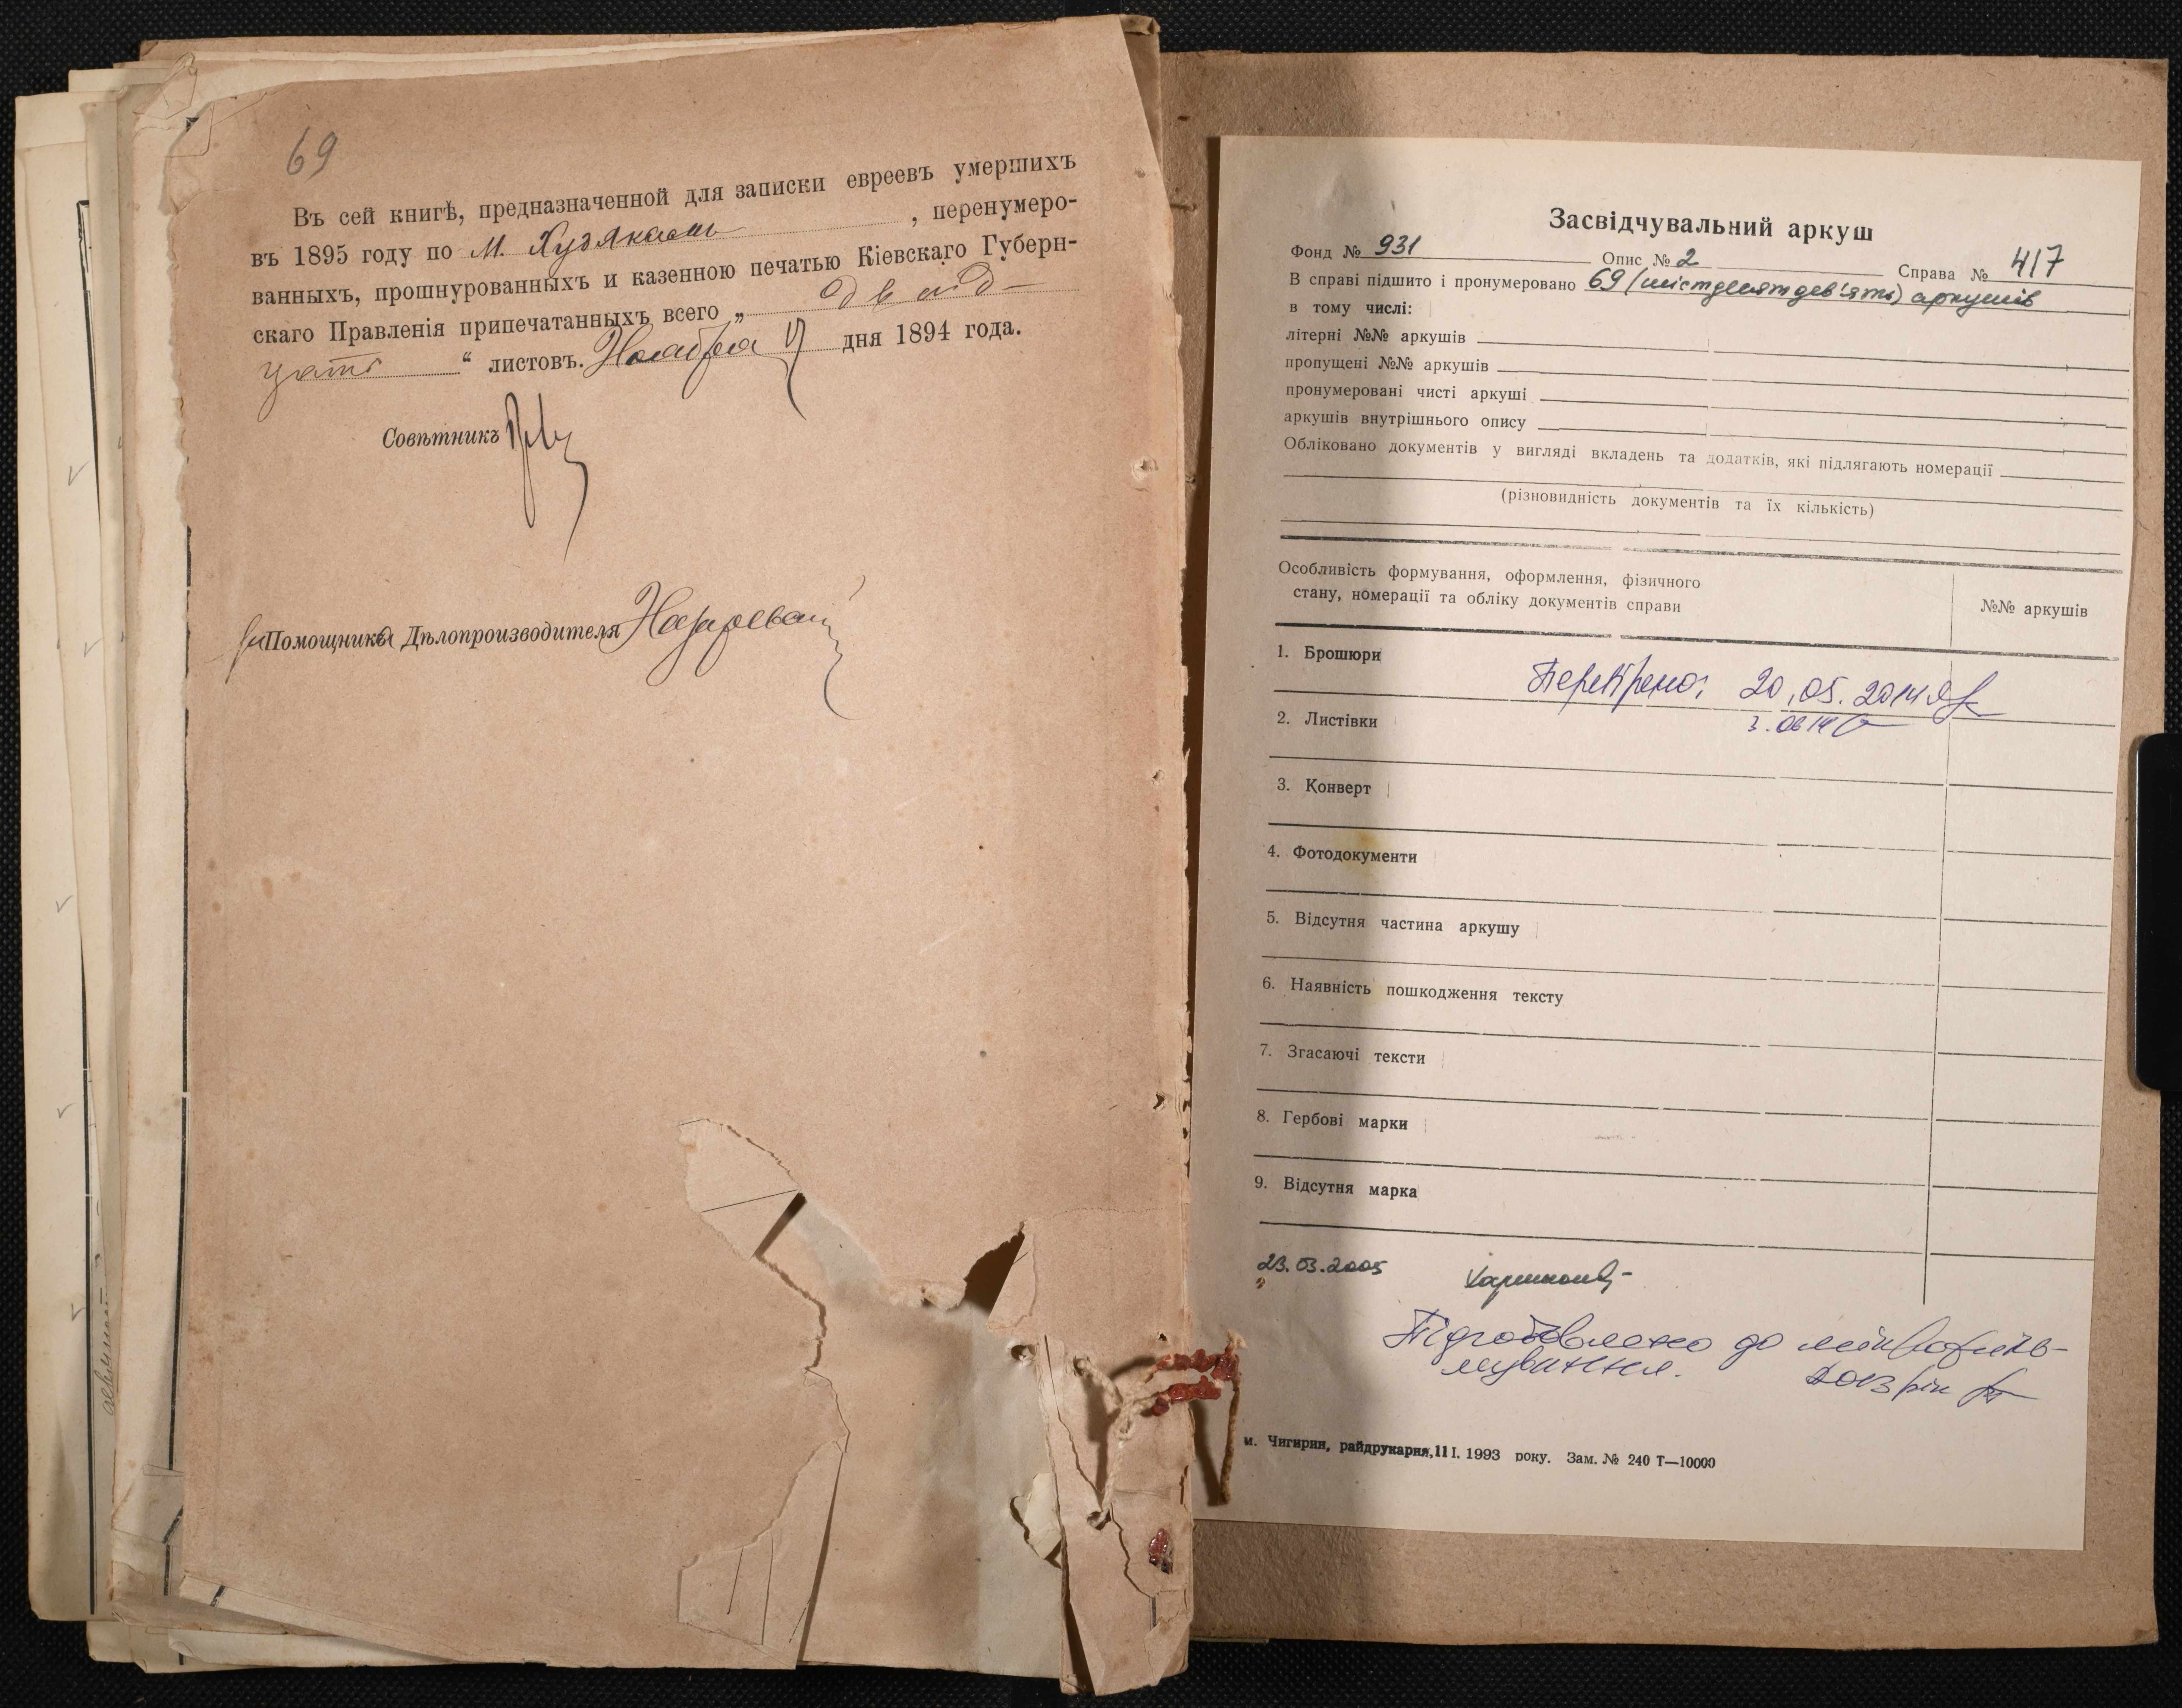 69
Въ сей книгѣ, предназначенной для записки евреевъ умершихъ
въ 1895 году по м. Худякамъ, перенумеро-
ванныхъ, прошнурованныхъ и казенною печатью Кіевскаго Губерн-
скаго Правленія припечатанныхъ всего „двад-
цать“ листовъ. Ноября 17 дня 1894 года.
Совѣтникъ
Помощника Дѣлопроизводителя
Засвідчувальний аркуш
Фонд № 931 Опис № 2 Справа № 417
В справі підшито і пронумеровано 69 (шістдесят дев'ять) аркушів
в тому числі:
літерні №№ аркушів
пропущені №№ аркушів
пронумеровані чисті аркуші
аркушів внутрішнього опису
Обліковано документів у вигляді вкладень та додатків, які підлягають номерації
(різновидність документів та їх кількість)
Особливість формування, оформлення, фізичного
стану, номерації та обліку документів справи
№№ аркушів
1. Брошюри
Перевірено: 20.05.2014
3.06 14
2. Листівки
3. Конверт
4. Фотодокументи
5. Відсутня частина аркушу
6. Наявність пошкодження тексту
7. Згасаючі тексти
8. Гербові марки
9. Відсутня марка
23.03.2005
Підготовлено до мікрофіль-
мування. 2013 рік
м. Чигирин, райдрукарня, 11 I. 1993 року. Зам. № 240 Т—10000